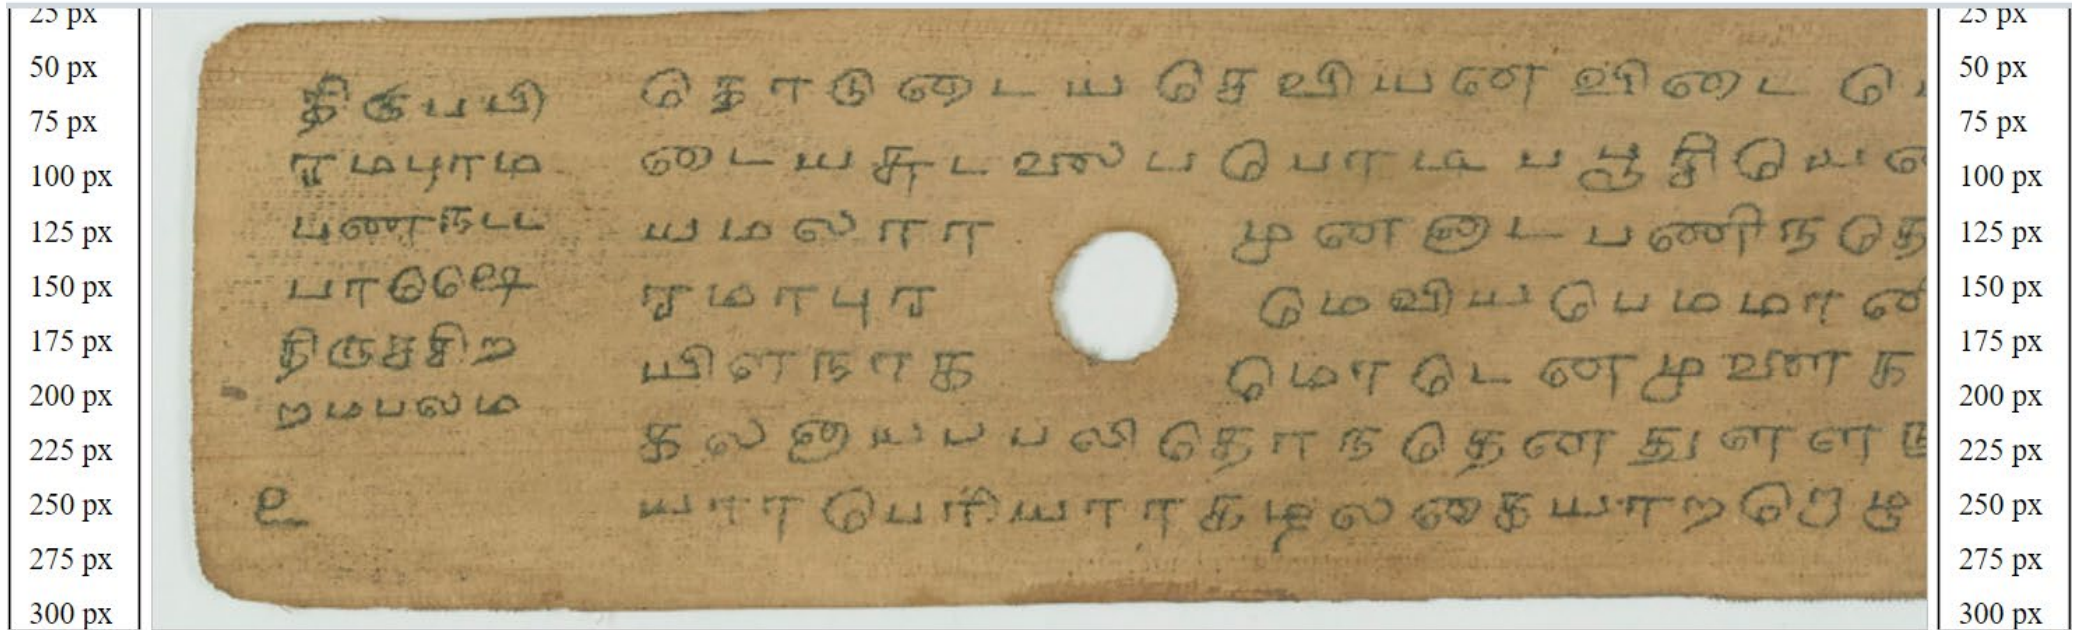 25 px
50 px
75 px
100 px
125 px
150 px
175 px
200 px
225 px
250 px
275 px
300 px
திருபபி
ரமபுரம
பணநடட
திருசசிற
றமபலம
௨
தொடுடையசெவியனவிடை
டையசுடலைபபொடிபபூசி
யமலரா முனனாடபணிநதெ
ரமாபுர மெவியபெமமான
யிளநாக மொடெனமுளைக
கலனாயபபலிதொநதெனதுளள
யாரபெரியாரகழலகையாறறொழு
25 px
50 px
75 px
100 px
125 px
150 px
175 px
200 px
225 px
250 px
275 px
300 px